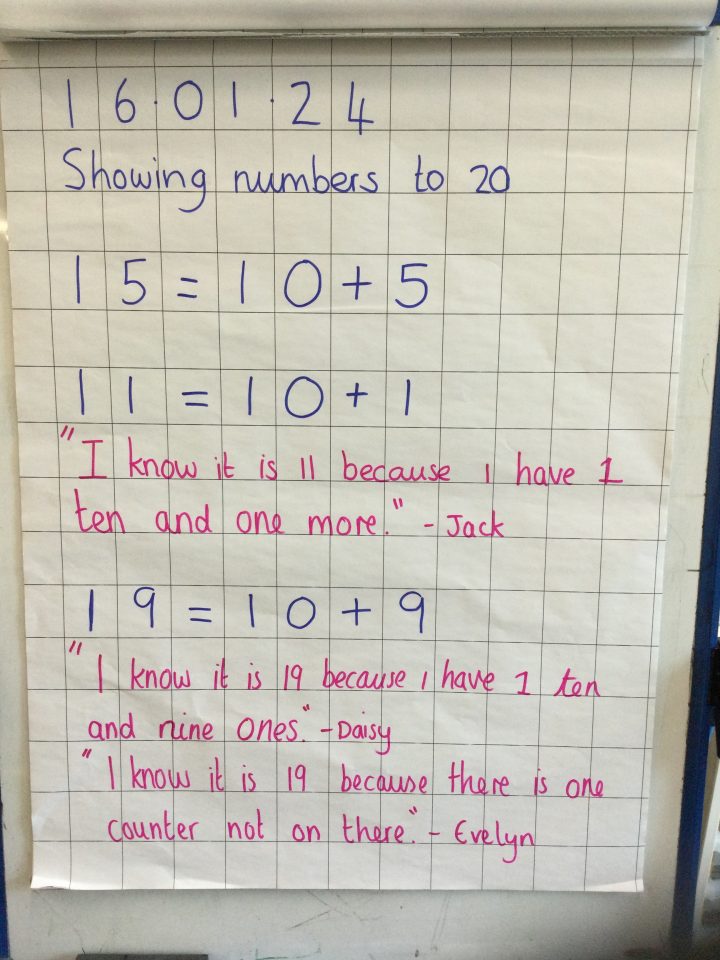 16.01.24
Showing numbers to 20
15 = 10 + 5
11 = 10 + 1
"I know it is 11 because I have 1
ten and one more." - Jack
19 = 10 + 9
"I know it is 19 because I have 1 ten
and nine ones." - Daisy
"I know it is 19 because there is one
counter not on there." - Evelyn